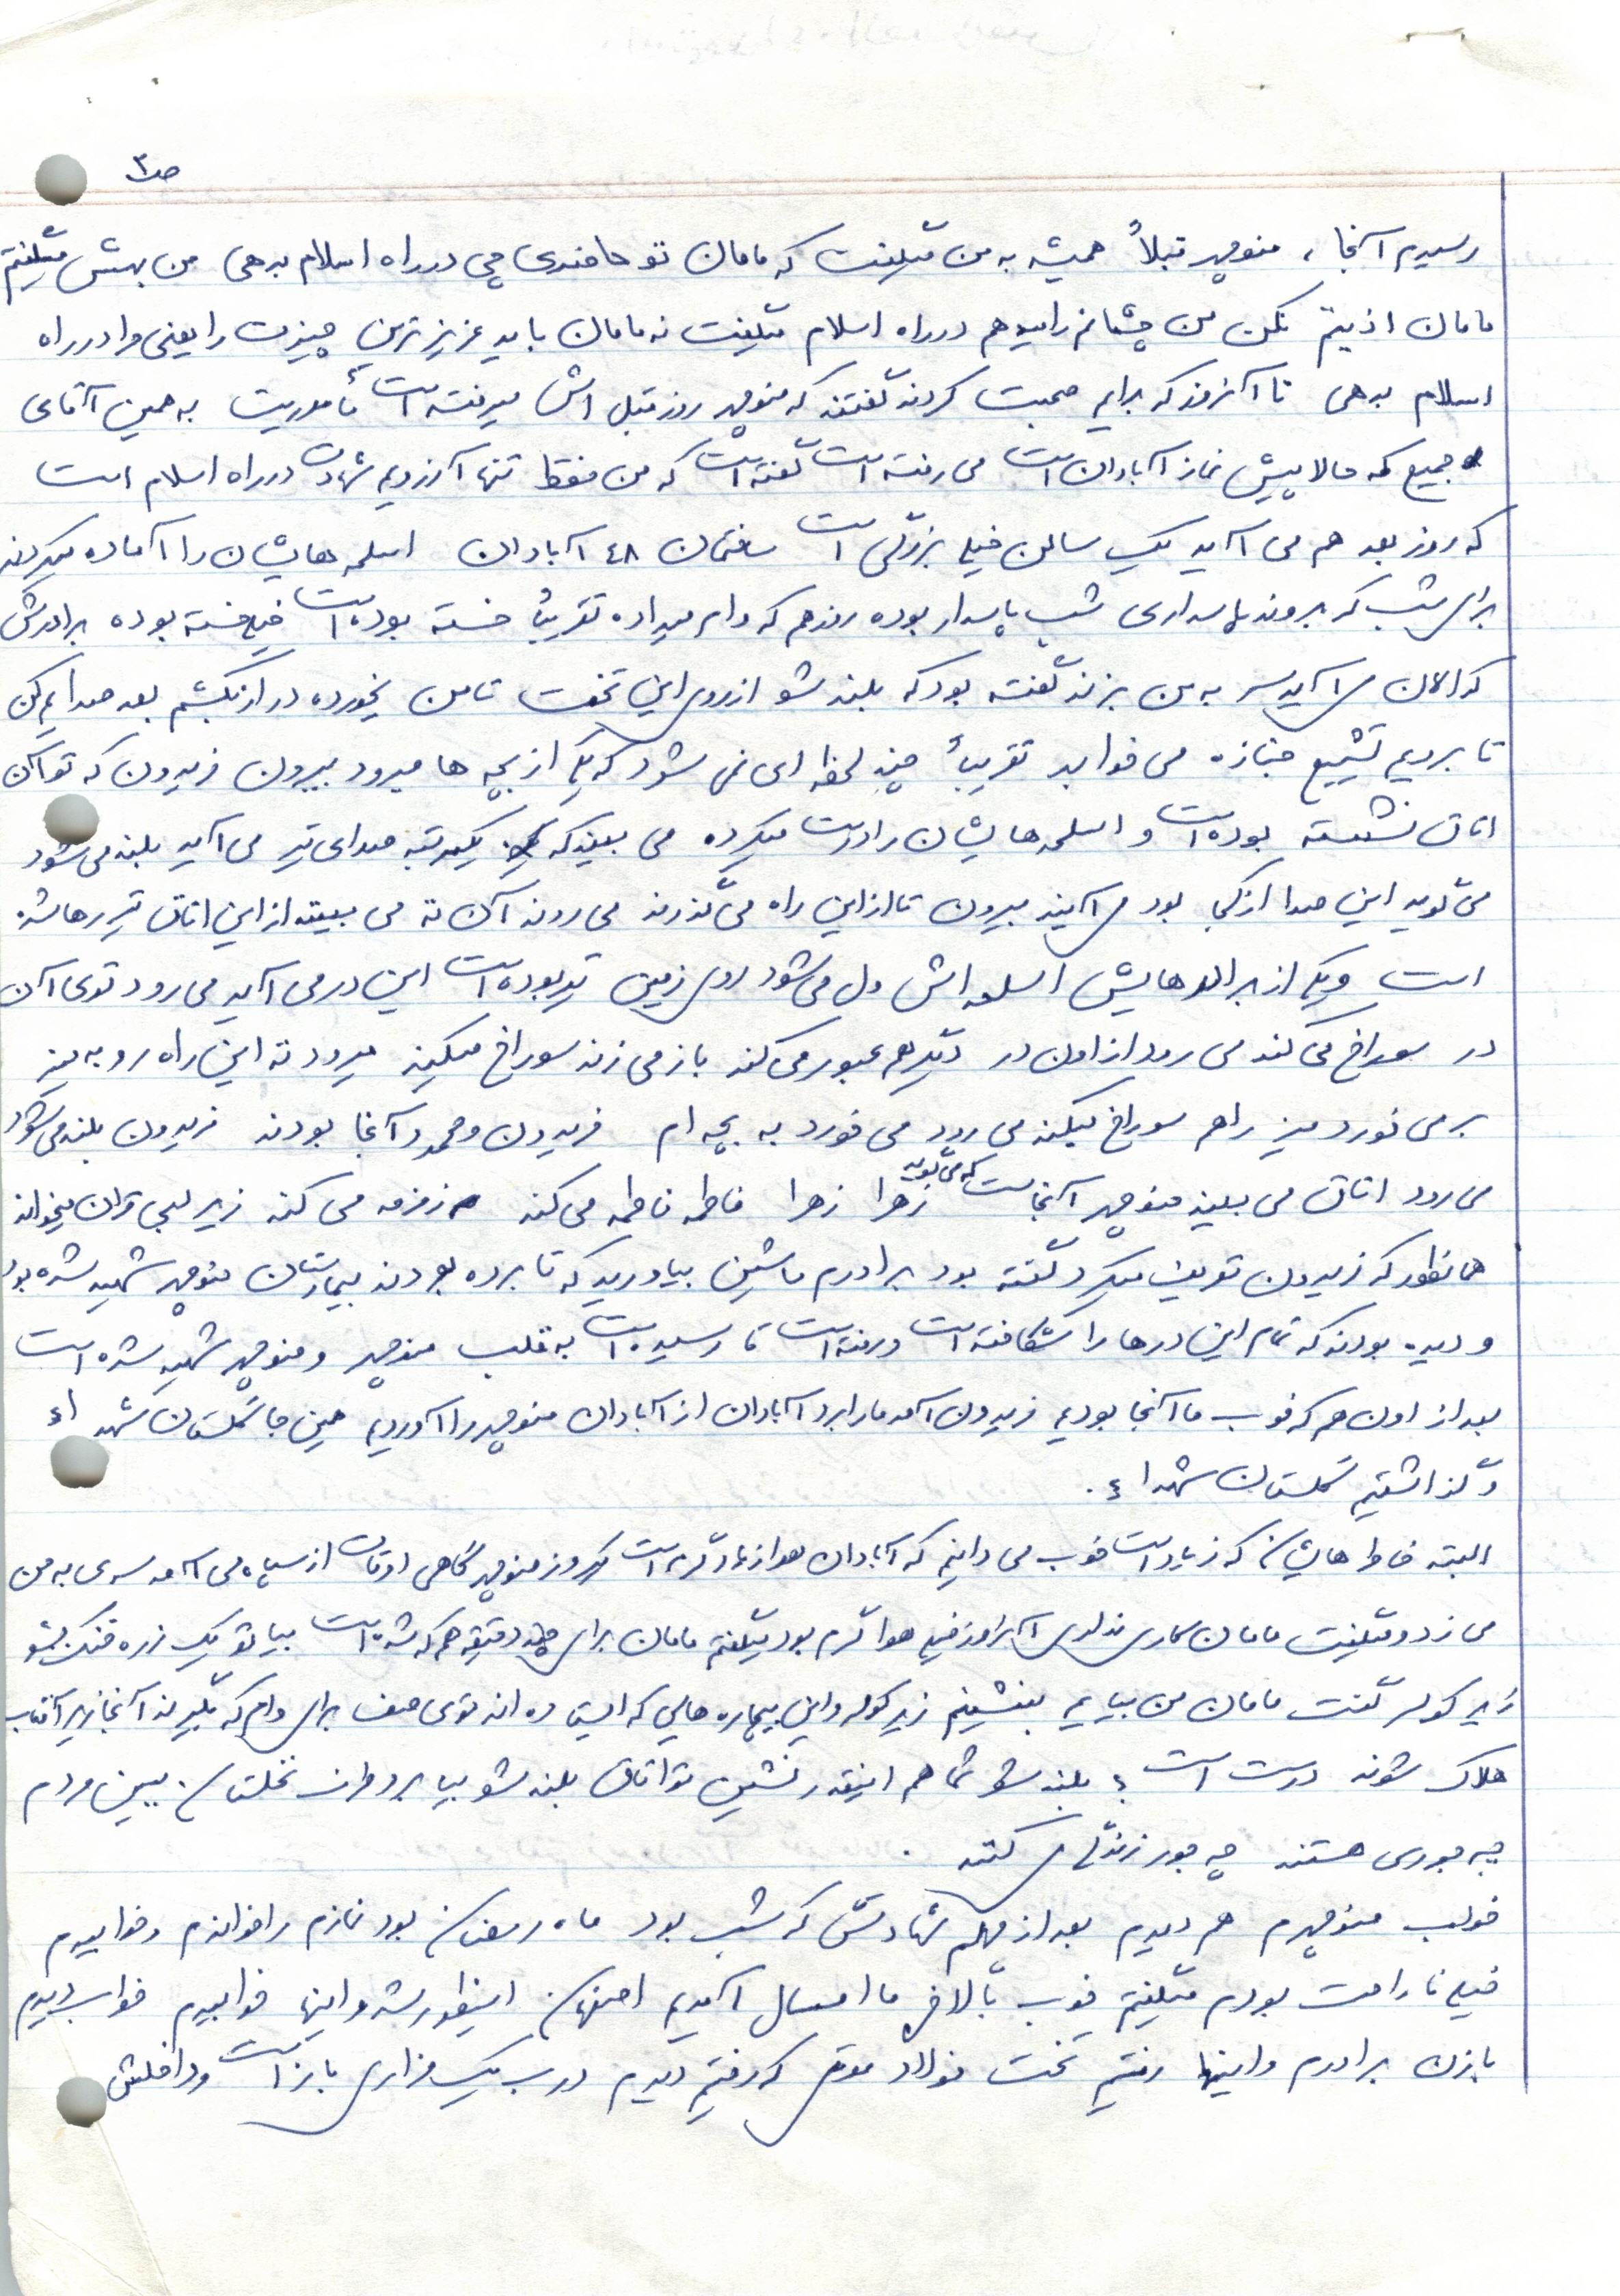 ص۳
رسیدیم آنجا، منوچهر قبلاً همیشه به من میگفت که مامان تو حاضری چی در راه اسلام بدهی من بهش میگفتم
مامان اذیتم نکن من چشمانم را میدهم در راه اسلام میگفت نه مامان باید عزیزترین چیزت را یعنی مرا در راه
اسلام بدهی تا آنروز که برایم صحبت کردند گفتند که منوچهر روز قبل اش میرفته است مأموریت به همین آقای
جمیع که حالا پیش نماز آبادان است می رفته است گفته است که من فقط تنها آرزویم شهادت در راه اسلام است
که روز بعد هم می آید یک سالن خیلی بزرگی است ساختمان ٤٨ آبادان اسلحه هایشان را آماده میکردند
برای شب که بروند پاسداری شب پاسدار بوده روز هم که وام میداده تقریباً خسته بوده است خیلی خسته بوده برادرش
که الان می آید سر به من بزند گفته بود که بلند شو از روی این تخت تا من یخورده دراز بکشم بعد صدایم کن
تا برویم تشییع جنازه می خوابد تقریباً چند لحظه ای نمی شود که یکی از بچه ها میرود بیرون فریدون که تو آن
اتاق نشسته بوده است و اسلحه هایشان را درست میکرده می بیند که یکمرتبه صدای تیر می آید بلند می شود
می گوید این صدا از کجا بود می آیند بیرون تا از این راه می گذرند می روند آن ته می بینند از این اتاق تیر رها شده
است و یکی از برادرهایش اسلحه اش ول می شود روی زمین تیر بوده است این در می آید می رود توی آن
در سوراخ می کند می رود از اون در دیگر هم عبور می کند باز می زند سوراخ میکند میرود ته این راه رو به میز
بر می خورد میز را هم سوراخ میکند می رود می خورد به بچه ام فریدون و محمد آنجا بودند فریدون بلند می شود
می رود اتاق می بیند منوچهر آنجاست که می گوید زهرا زهرا فاطمه فاطمه می کند زمزمه می کند زیر لبی قران میخواند
همانطور که فریدون تعریف میکرد گفته بود برادرم ماشین بیاورید که تا برده بودند بیمارستان منوچهر شهید شده بود
و دیده بودند که تمام این درها را شکافته است و رفته است تا رسیده است به قلب منوچهر و منوچهر شهید شده است
بعد از اون هم که خوب ما آنجا بودیم فریدون آمد ما را برد آبادان از آبادان منوچهر را آوردیم همین جا گلستان شهداء
و گذاشتیم گلستان شهداء.
البته خاطراهایشان که زیاد است خوب می دانیم که آبادان هوا زیاد گرم است یکروز منوچهر گاهی اوقات از سپاه می آمد سری به من
می زد و میگفت مامان کاری نداری آنروز خیلی هوا گرم بود میگفتم مامان برای چند دقیقه هم که شده است بیا تو یک زره خنک بشو
زیر کولر گفت مامان من بیایم بنشینم زیر کولر و این بیچاره هایی که ایستاده اند توی صف برای وام که بگیرند آنجا زیر آفتاب
هلاک شوند درست است؟ بلند شو شما هم اینقدر نشین تو اتاق بلند شو بیا برو طرف نخلستان ببین مردم
چه جوری هستند چه جور زندگی می کنند.
خواب منوچهرم هم دیدم بعد از چهلم شهادتش که شب بود ماه رمضان بود نمازم را خواندم و خوابیدم
خیلی ناراحت بودم میگفتم خوب بالاخره ما امسال آمدیم اصفهان اینطور شد و اینها خوابیدم خواب دیدم
با زن برادرم و اینها رفتیم تخت فولاد موقعی که رفتیم دیدم درب یک مزاری باز است و داخلش